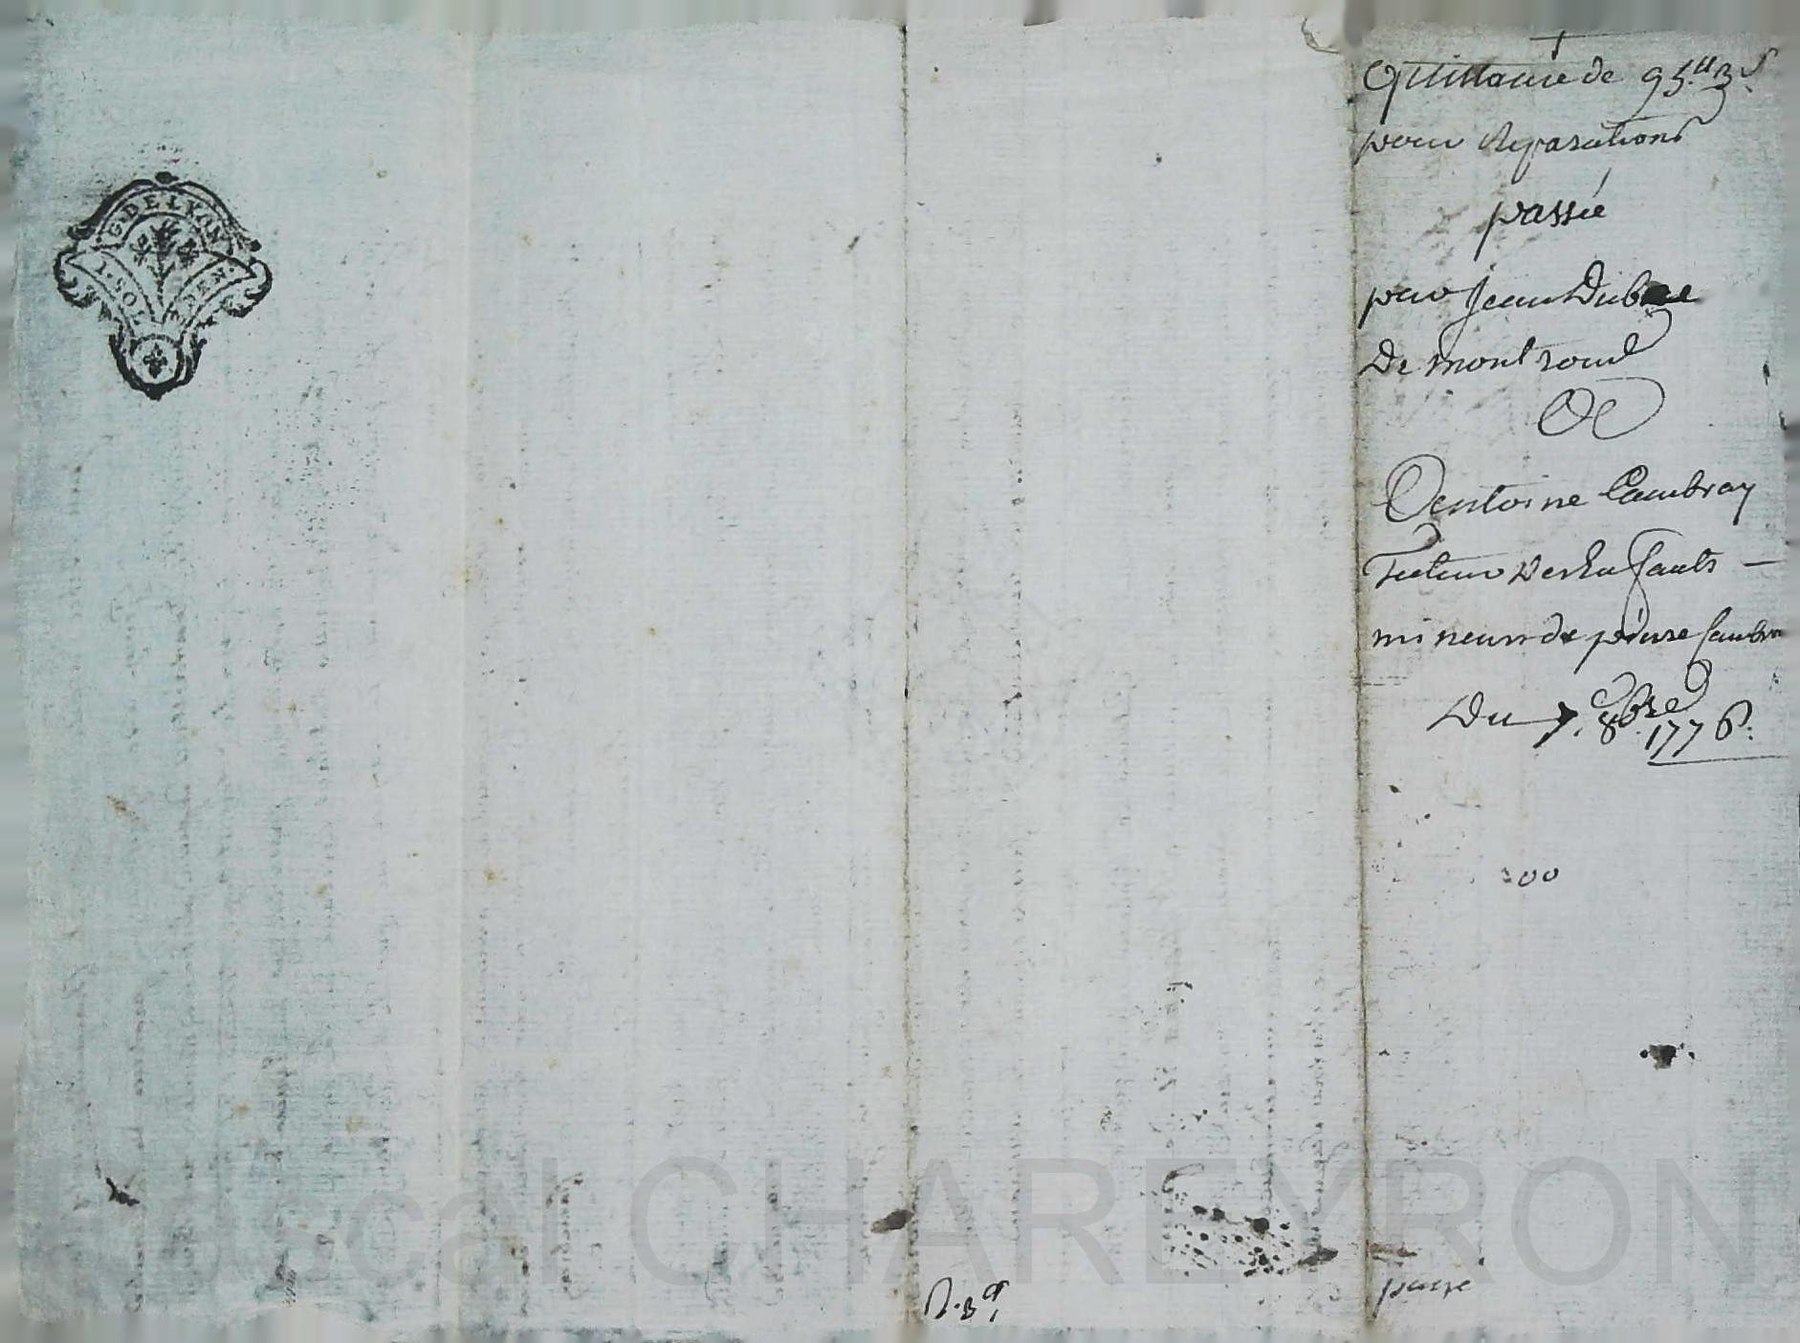 G. DE LYON
1. SOL
Quittance de 95.ᵗᵗ 3.ˢ
pour Reparations
passée
par Jean Dub
De montrond
A
Antoine Cambray
Tuteur Des Enfants —
mineurs de pierre Cambra
Du 7. 8bre 1776.
200
passé
Pascal CHAREYRON